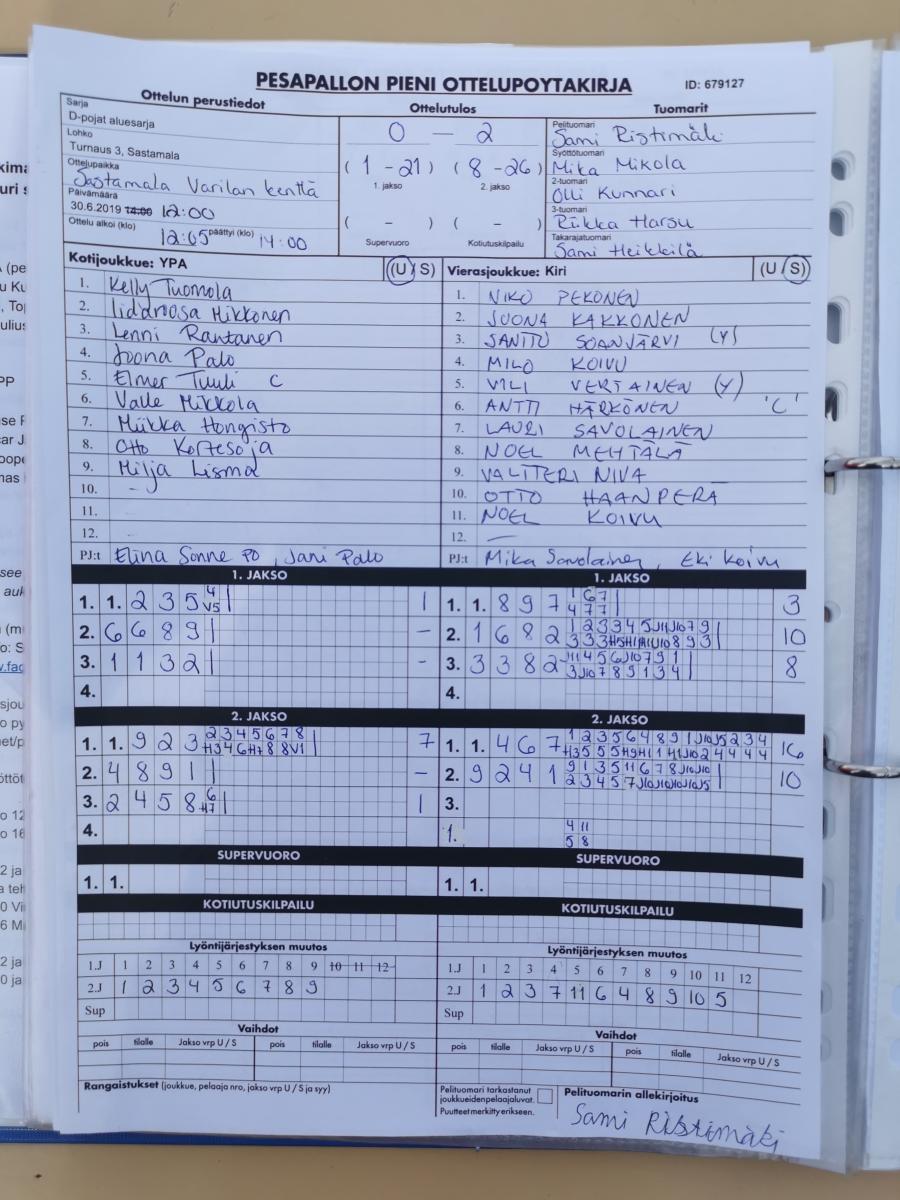 PESAPALLON PIENI OTTELUPOYTAKIRJA
ID: 679127
Ottelun perustiedot
Sarja
D-pojat aluesarja
Lohko
Turnaus 3, Sastamala
Ottelupaikka
Sastamala Varilan kenttä
Päivämäärä
30.6.2019 14:00 12:00
Ottelu alkoi (klo) 12:05 päättyi (klo) 14:00
Ottelutulos
0 - 2
(1-21) (8-26)
1. jakso 2. jakso
( - ) ( - )
Supervuoro Kotiutuskilpailu
Tuomarit
Pelituomari
Sami Ristimäki
Syöttötuomari
Mika Mikola
2-tuomari
Olli Kunnari
3-tuomari
Riikka Harsu
Takarajatuomari
Sami Heikkilä
Kotijoukkue: YPA (U/S)
1. Kelly Tuomola
2. Iidaroosa Mikkonen
3. Lenni Rantanen
4. Joona Palo
5. Elmer Tuuli C
6. Valle Mikkola
7. Miikka Hongisto
8. Otto Kortesoja
9. Milja Lisma
10. -
11.
12.
PJ:t Elina Sonne PO, Jani Palo
Vierasjoukkue: Kiri (U/S)
1. NIKO PEKONEN
2. JUONA KAKKONEN
3. SANTTU SOANJÄRVI (Y)
4. MILO KOIVU
5. VILI VERTAINEN (Y)
6. ANTTI HÄRKÖNEN 'C'
7. LAURI SAVOLAINEN
8. NOEL MEHTÄLÄ
9. VALTTERI NIVA
10. OTTO HAANPERÄ
11. NOEL KOIVU
12. -
PJ:t Mika Savolainen, Eki Koivu
1. JAKSO
1. 1. 2 3 5 4 V5 1
2. 6 6 8 9 -
3. 1 1 3 2 -
4.
1. JAKSO
1. 1. 8 9 7 1 6 7 3
4 7 7
2. 1 6 8 2 10
3. 3 3 8 2 8
4.
2. JAKSO
1. 1. 9 2 3 2 3 4 5 6 7 8 7
H3 4 6 H7 8 8 V1
2. 4 8 9 1 -
3. 2 4 5 8 6 H7 1
4.
2. JAKSO
1. 1. 4 6 7 16
2. 9 2 4 1 10
3.
1. 4 11
5 8
SUPERVUORO
1. 1.
SUPERVUORO
1. 1.
KOTIUTUSKILPAILU
KOTIUTUSKILPAILU
Lyöntijärjestyksen muutos
1.J 1 2 3 4 5 6 7 8 9 10 11 12
2.J 1 2 3 4 5 6 7 8 9
Sup
Lyöntijärjestyksen muutos
1.J 1 2 3 4 5 6 7 8 9 10 11 12
2.J 1 2 3 7 11 6 4 8 9 10 5
Sup
Vaihdot
pois tilalle Jakso vrp U / S pois tilalle Jakso vrp U / S
Vaihdot
pois tilalle Jakso vrp U / S pois tilalle Jakso vrp U / S
Rangaistukset (joukkue, pelaaja nro, jakso vrp U / S ja syy)
Pelituomari tarkastanut
joukkueidenpelaajaluvat.
Puutteet merkitty erikseen.
Pelituomarin allekirjoitus
Sami Ristimäki